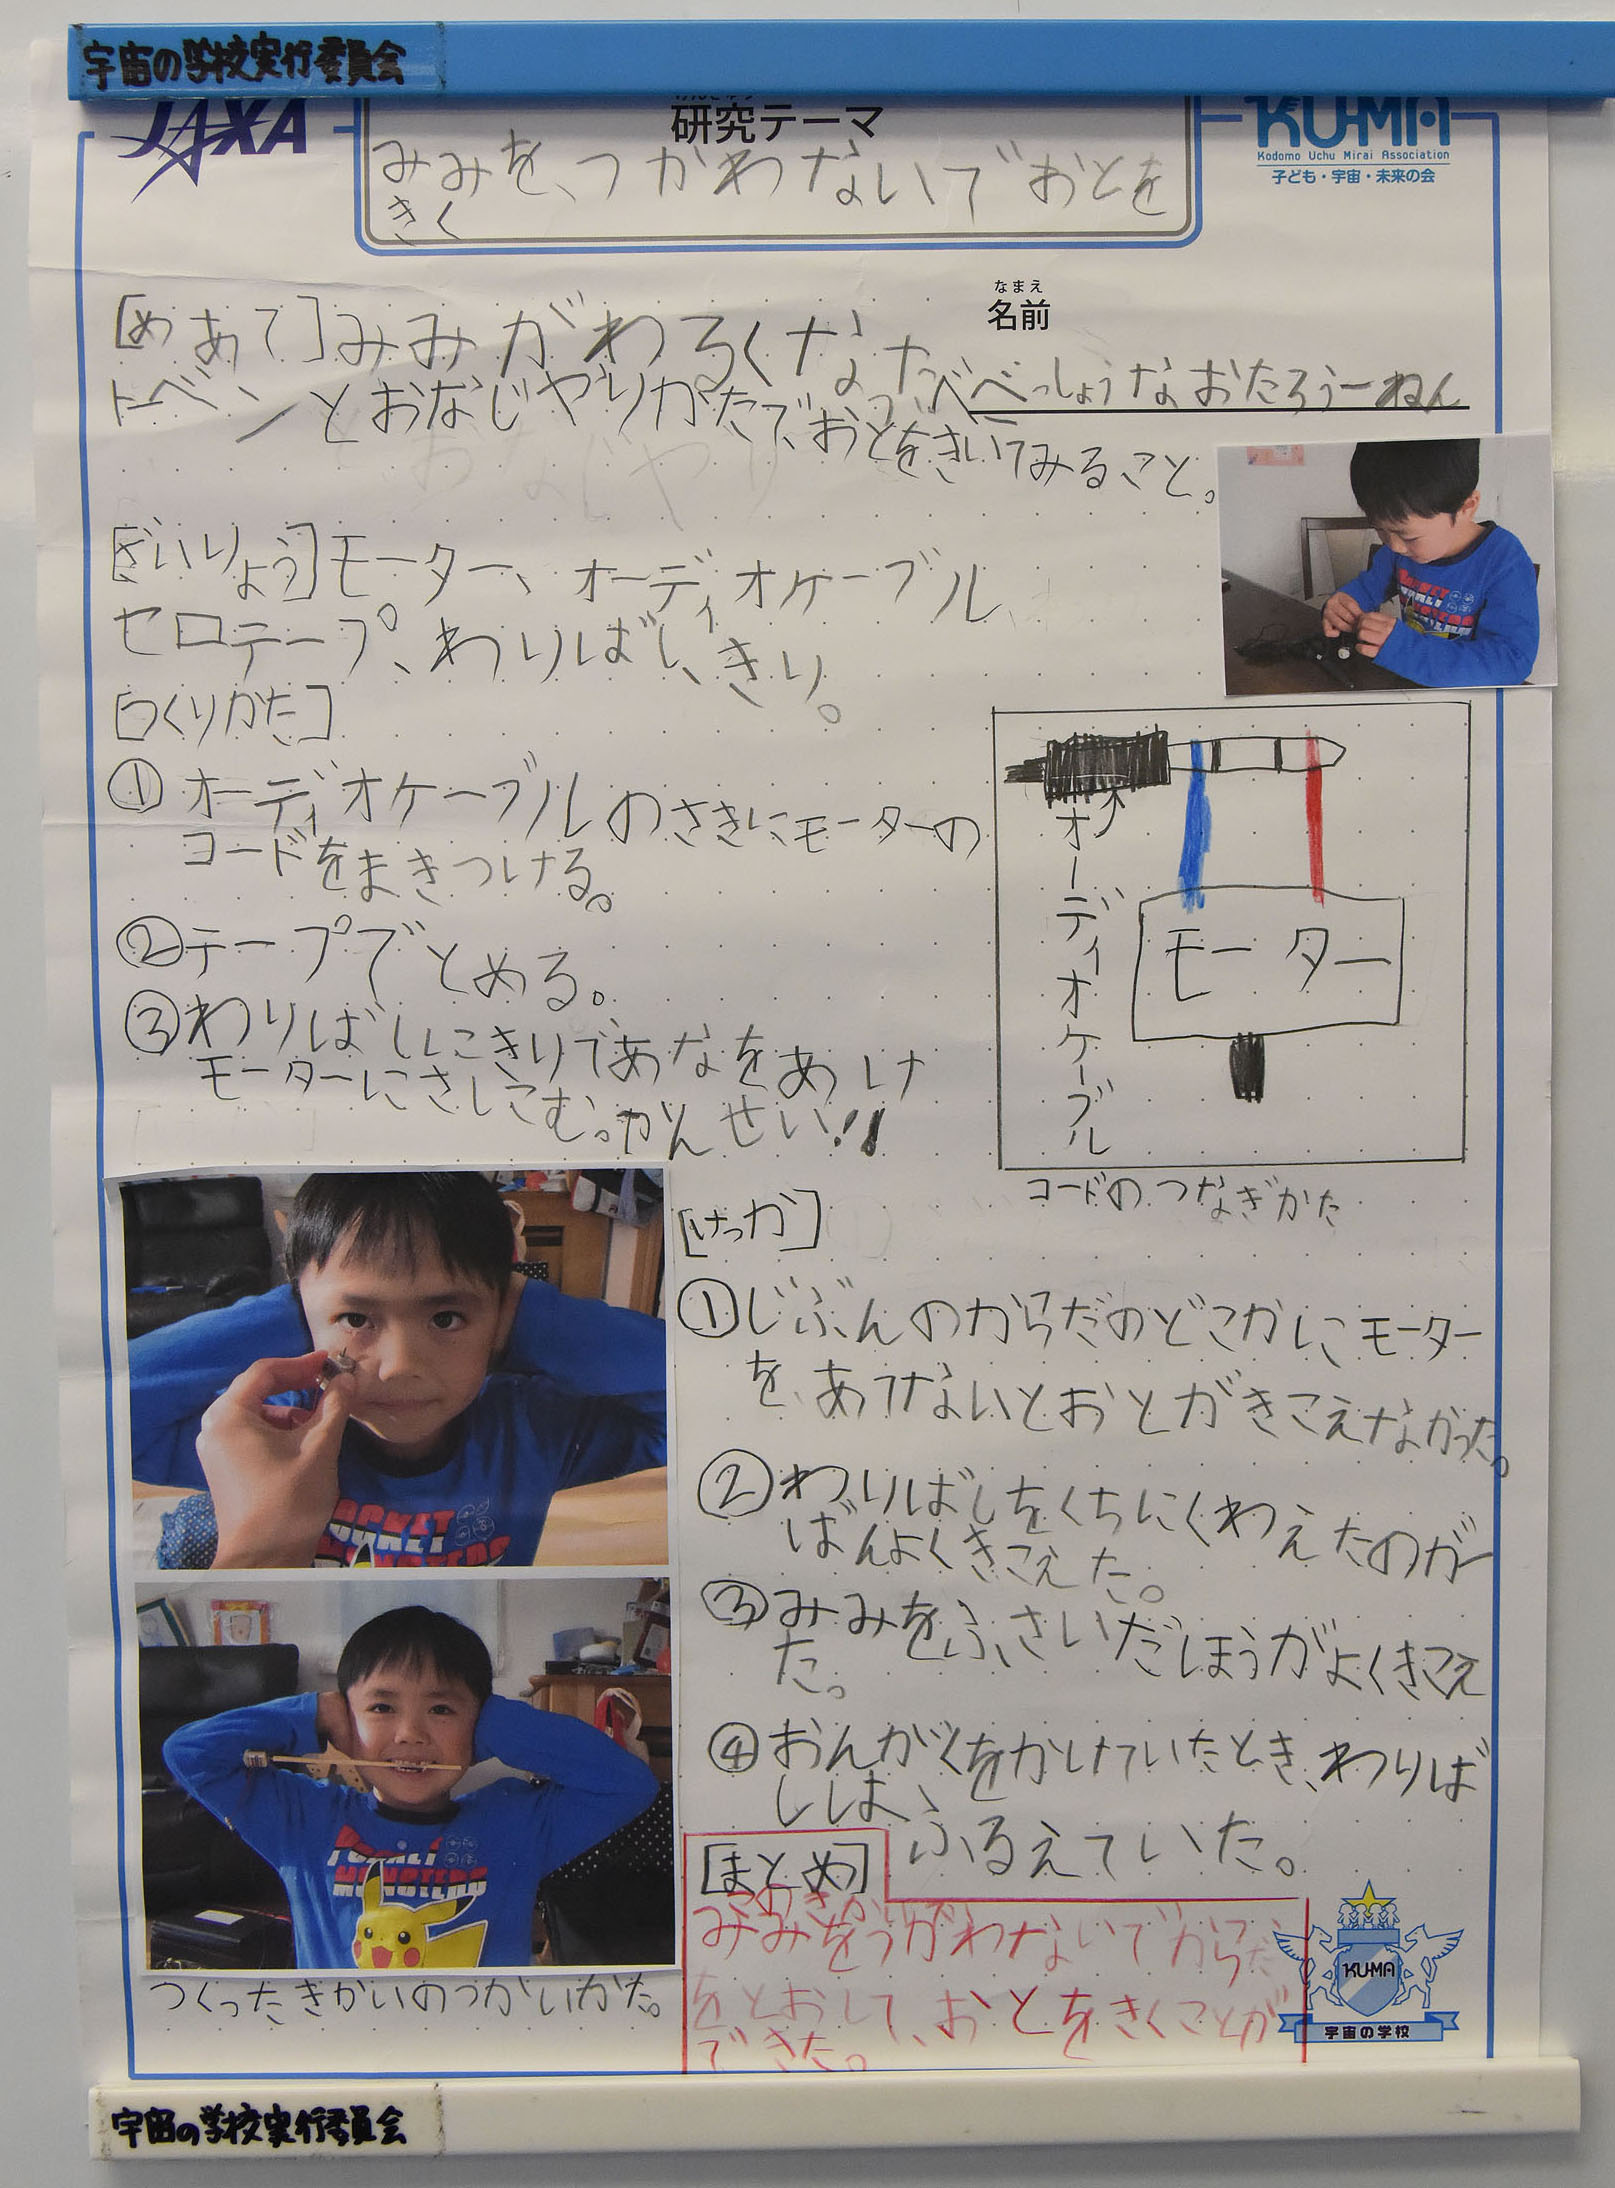 宇宙の学校実行委員会
JAXA
研究テーマ
KU-MA
Kodomo Uchu Mirai Association
子ども・宇宙・未来の会
みみを、つかわないで おとを
きく
なまえ
名前
べっしょう な おたろう 一ねん
[めあて]みみがわるくなったべ
トーベンとおなじやりかたで、おとをきいてみること。
[ざいりょう]モーター、オーディオケーブル、
セロテープ、わりばし、きり。
[つくりかた]
① オーディオケーブルのさきにモーターの
コードをまきつける。
②テープでとめる。
③わりばしにきりであなをあけ
モーターにさしこむ。かんせい!!
オーディオケーブル
モーター
コードの つなぎかた
[けっか]
①じぶんのからだのどこかにモーター
をあてないとおとがきこえなかった。
②わりばしをくちにくわえたのが一
ばんよくきこえた。
③みみをふさいだほうがよくきこえ
た。
④おんがくをかけていたとき、わりば
しは、ふるえていた。
つくったきかいのつかいかた。
[まとめ]
みみをつかわないでからだ
をとおして、おとをきくことが
できた。
KU-MA
宇宙の学校
宇宙の学校実行委員会